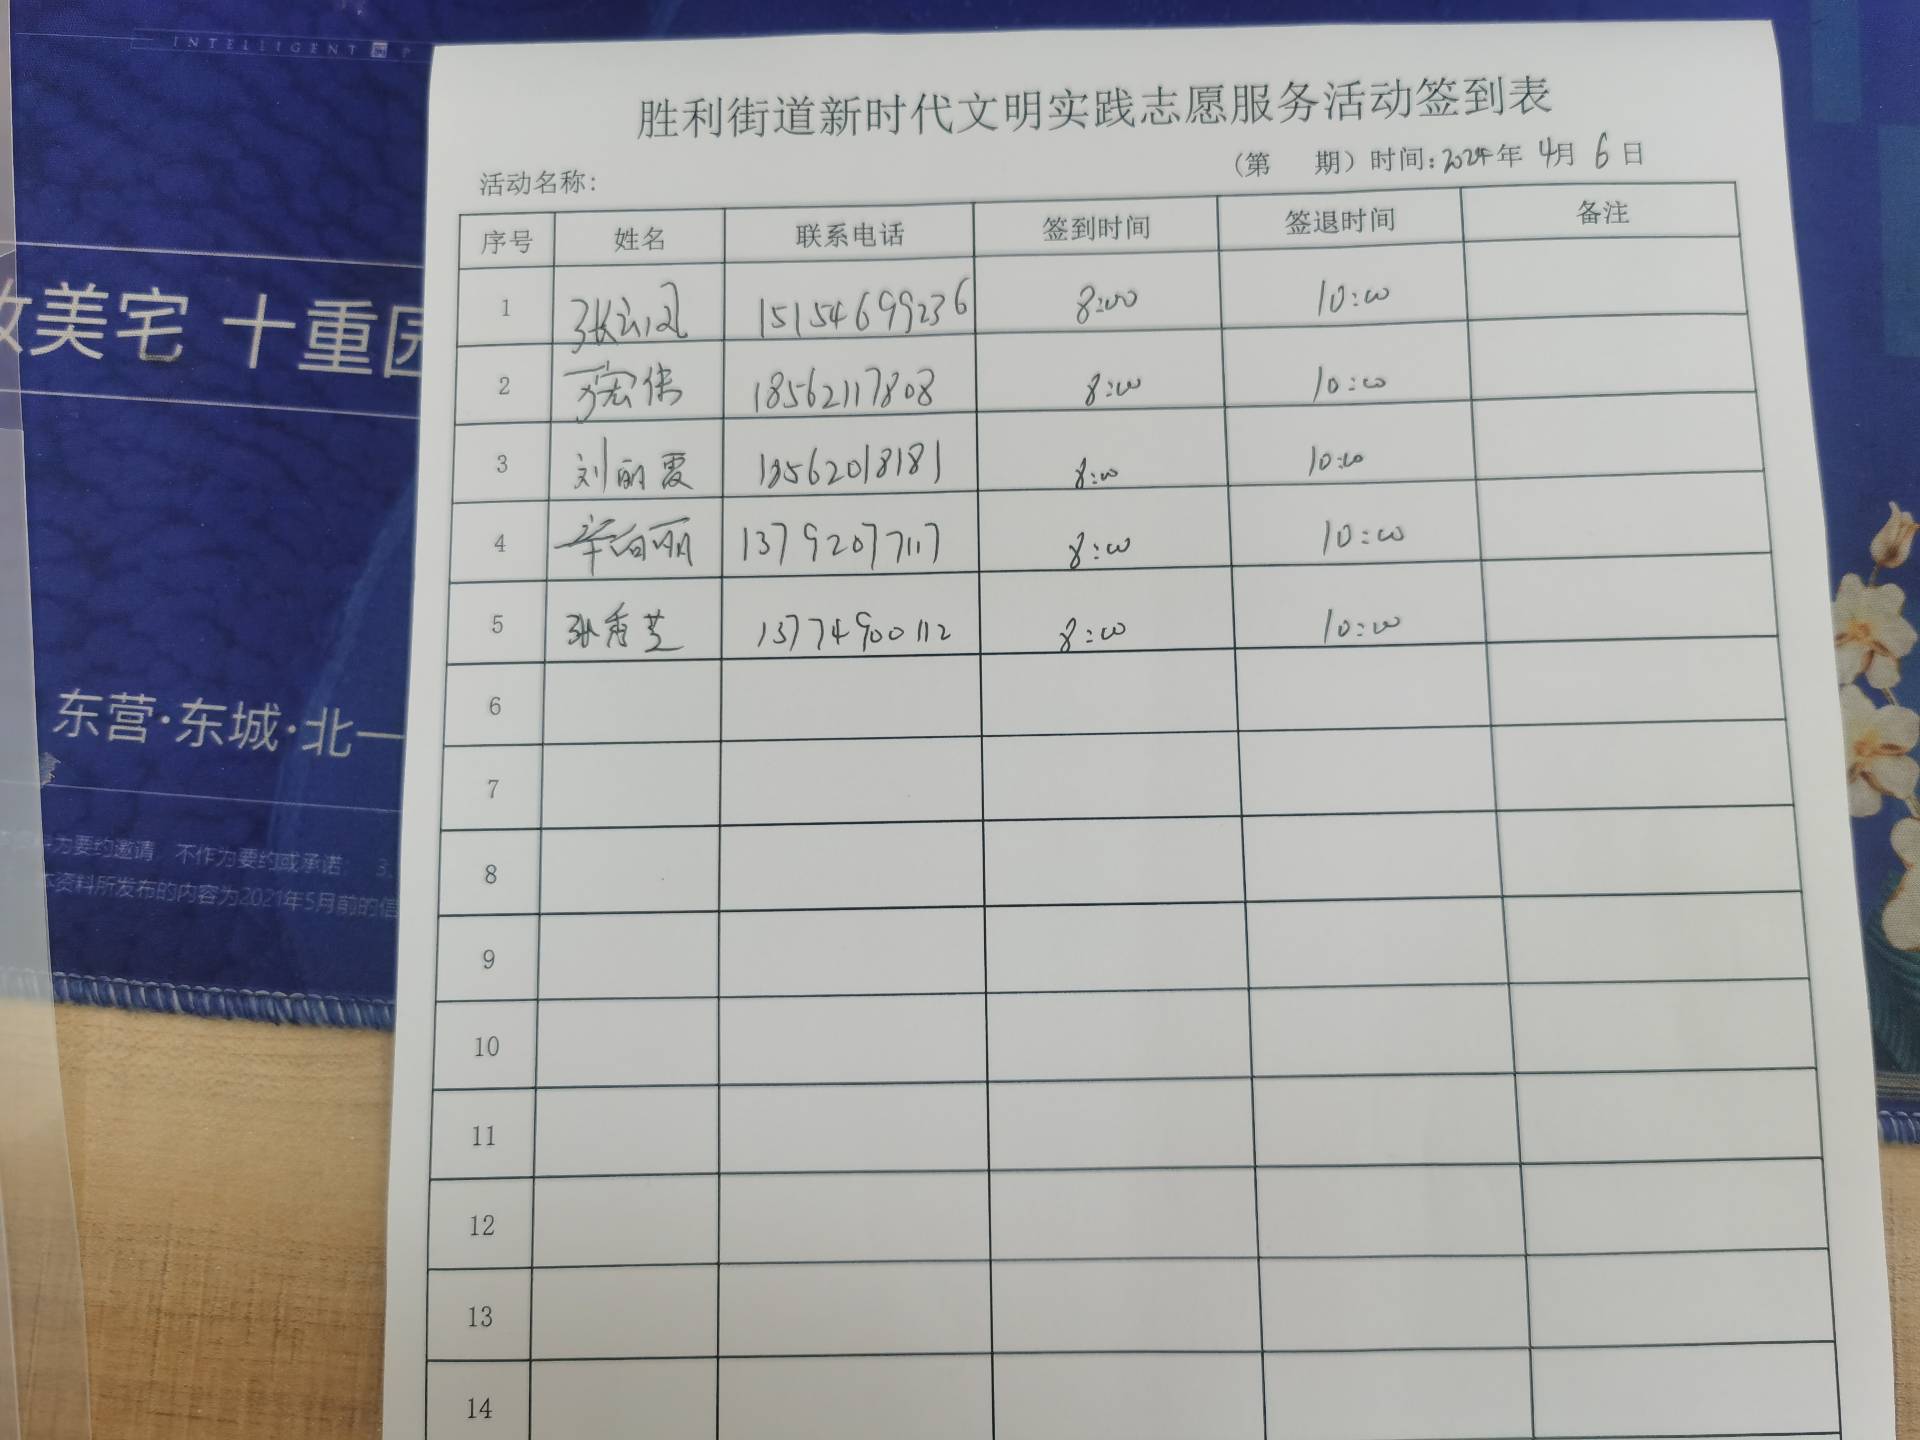 INTELLIGENT
美宅 十重园
东营·东城·北一
为要约邀请，不作为要约或承诺； 3.
本资料所发布的内容为2021年5月前的信
胜利街道新时代文明实践志愿服务活动签到表
活动名称： （第 期）时间：2024年 4月 6日
序号 姓名 联系电话 签到时间 签退时间 备注
1 张云凤 15154699236 8:00 10:00
2 宏伟 18562117808 8:00 10:00
3 刘丽霞 18562018181 8:00 10:00
4 辛向丽 13792077117 8:00 10:00
5 孙秀芝 13774900112 8:00 10:00
6
7
8
9
10
11
12
13
14